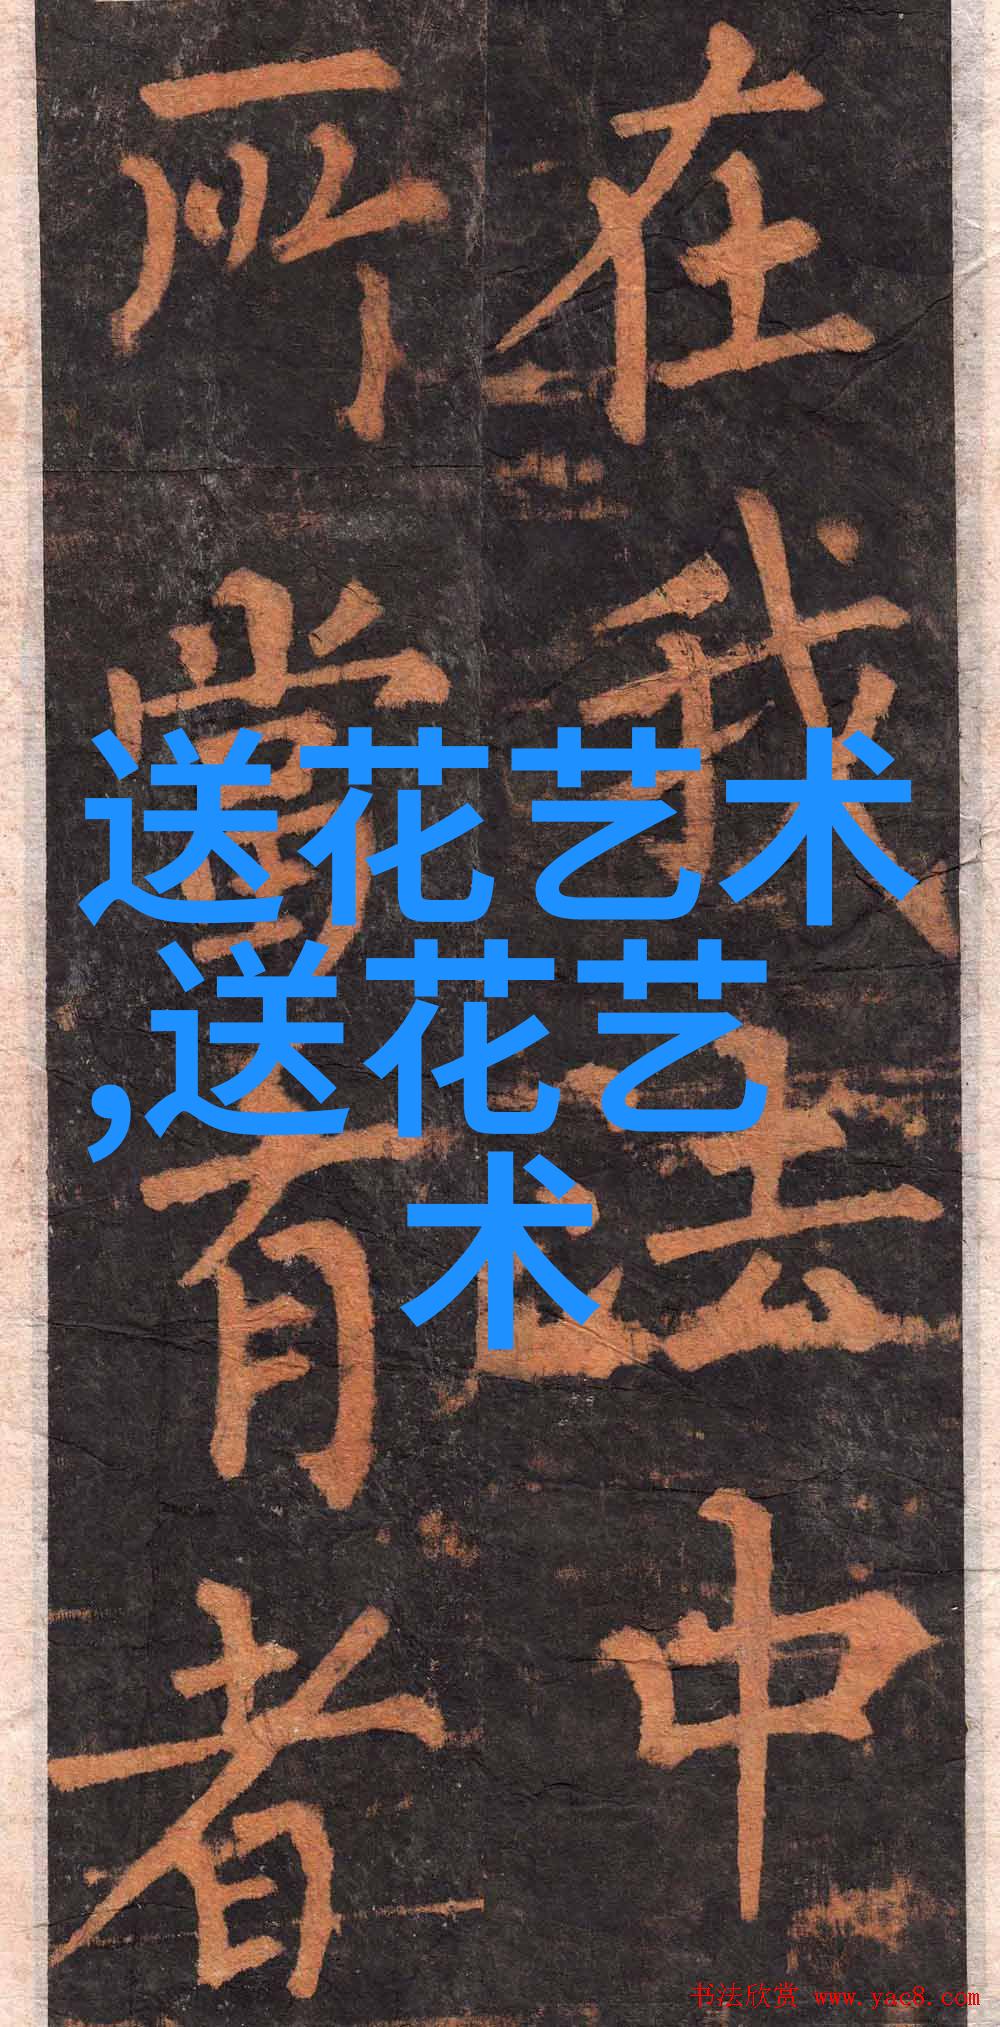 在我法中
所當有者
送花艺术
,送花艺
术
书法欣赏 www.yac8.com